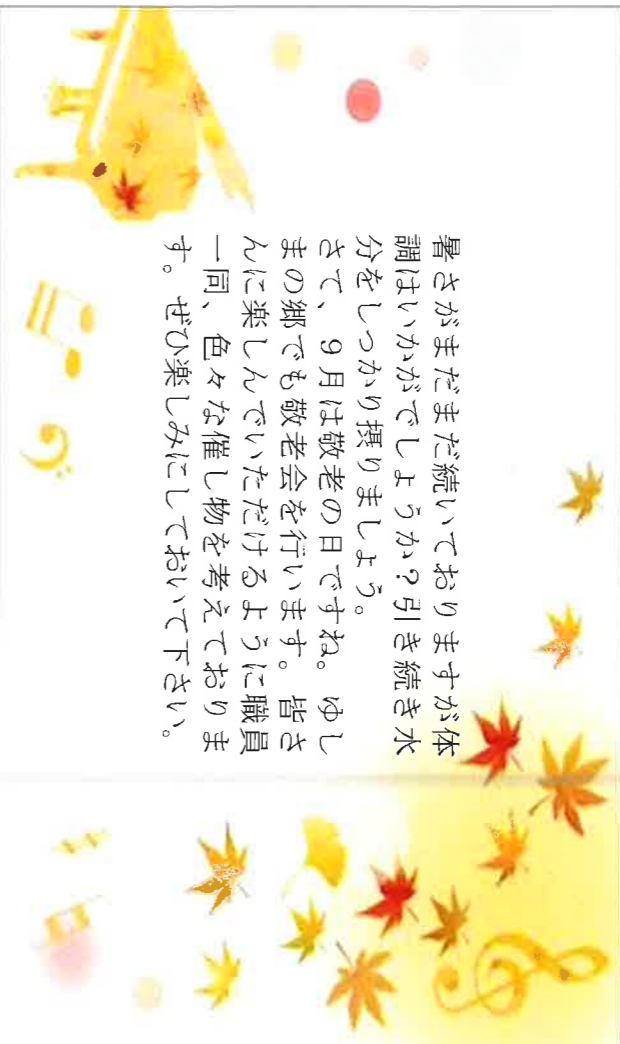 暑さがまだまだ続いておりますが体
調はいかがでしょうか？引き続き水
分をしっかり摂りましょう。
さて、９月は敬老の日ですね。ゆし
まの郷でも敬老会を行います。皆さ
んに楽しんでいただけるように職員
一同、色々な催し物を考えておりま
す。ぜひ楽しみにしておいて下さい。